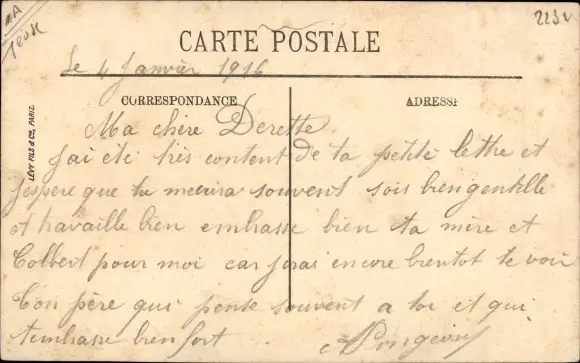 223V
CARTE POSTALE
Le 4 Janvier 1916
CORRESPONDANCE
ADRESSE
LÉVY FILS & Cie, PARIS.
Ma chère Derette
J'ai été très content de ta petite lettre et
j'espère que tu mecrira souvent sois bien gentille
et travaille bien embrasse bien ta mère et
Colbert pour moi car j'irai encore bientot te voir
Ton père qui pense souvent a toi et qui
t'embrasse bien fort